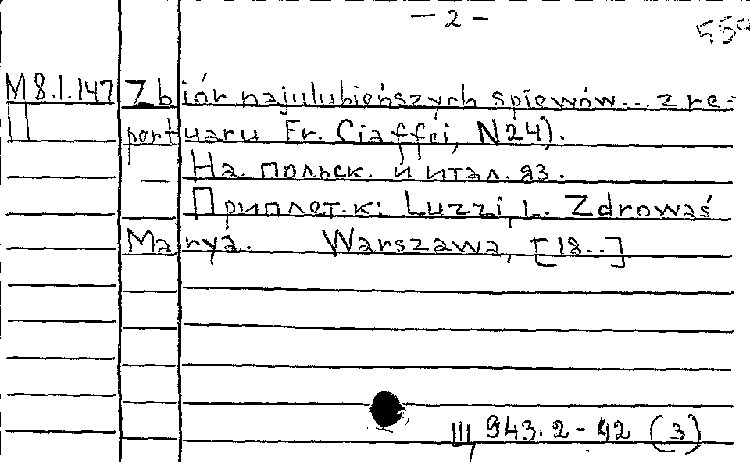 — 2 —
M 8.1.147 Zbiór najulubieńszych śpiewów... z re-
П pertuaru Fr. Ciaffei, N24).
На польск. и итал. яз.
Приплет. к: Luzzi, L. Zdrowaś
Marya. Warszawa, [18..]
III, 943.2-42 (3)